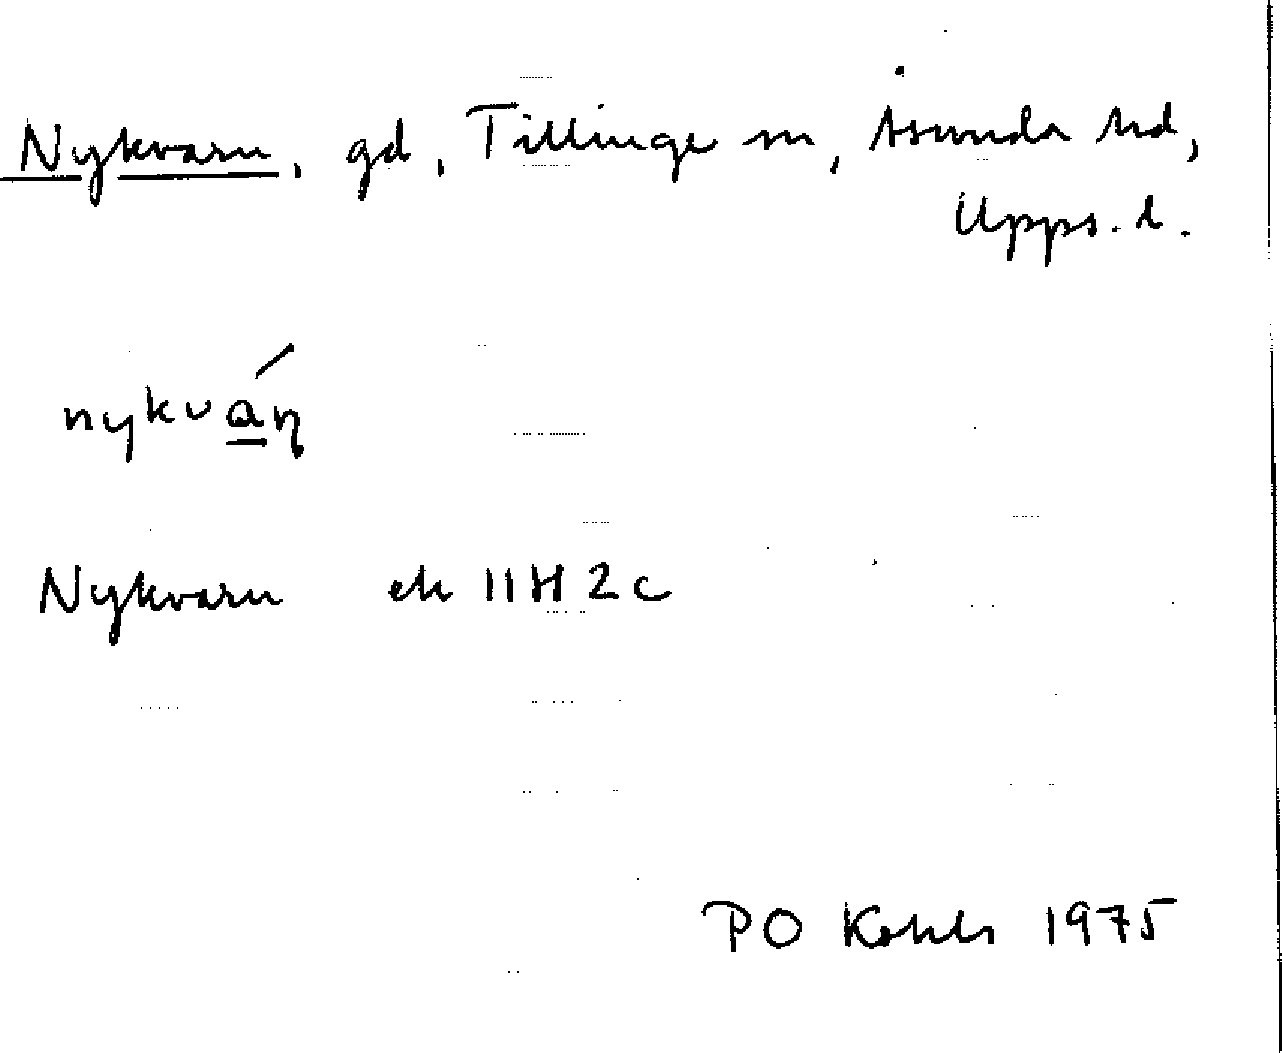 Nykvarn, gd, Tillinge sn, Åsunda hd,
Upps. l.
nykván
Nykvarn ek 11H 2c
PO 1975